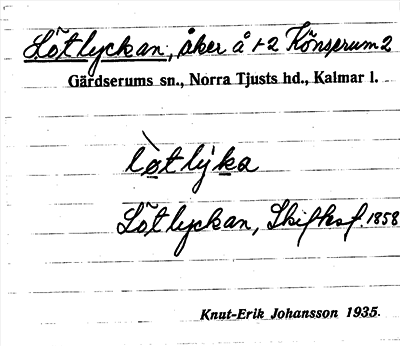 Lötlyckan, åker å 1-2 Könserum 2
Gärdserums sn., Norra Tjusts hd., Kalmar l.
lø̀tly̓ka
Lötlyckan, Skifksf. 1858
Knut-Erik Johansson 1935.